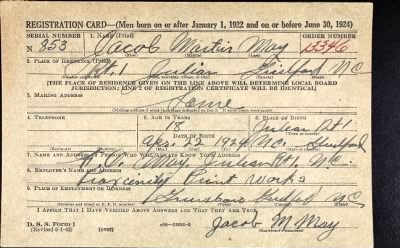 REGISTRATION CARD—(Men born on or after January 1, 1922 and on or before June 30, 1924)
SERIAL NUMBER 1. NAME (Print) ORDER NUMBER
N 353 Jacob Martin May 13346
(First) (Middle) (Last)
2. PLACE OF RESIDENCE (Print)
Rt. 1 Julian Guilford N.C.
[THE PLACE OF RESIDENCE GIVEN ON THE LINE ABOVE WILL DETERMINE LOCAL BOARD
JURISDICTION; LINE 2 OF REGISTRATION CERTIFICATE WILL BE IDENTICAL]
3. MAILING ADDRESS
Same
4. TELEPHONE 5. AGE IN YEARS 6. PLACE OF BIRTH
18 Julian Rt 1
DATE OF BIRTH
Apr. 22 1924 N.C. Guilford
7. NAME AND ADDRESS OF PERSON WHO WILL ALWAYS KNOW YOUR ADDRESS
May, Julian Rt 1, N.C.
8. EMPLOYER'S NAME AND ADDRESS
Proximity Print Works
9. PLACE OF EMPLOYMENT OR BUSINESS
Greensboro Guilford N.C.
I AFFIRM THAT I HAVE VERIFIED ABOVE ANSWERS AND THAT THEY ARE TRUE.
D. S. S. Form 1
(Revised 6-1-42) (over)
Jacob M May